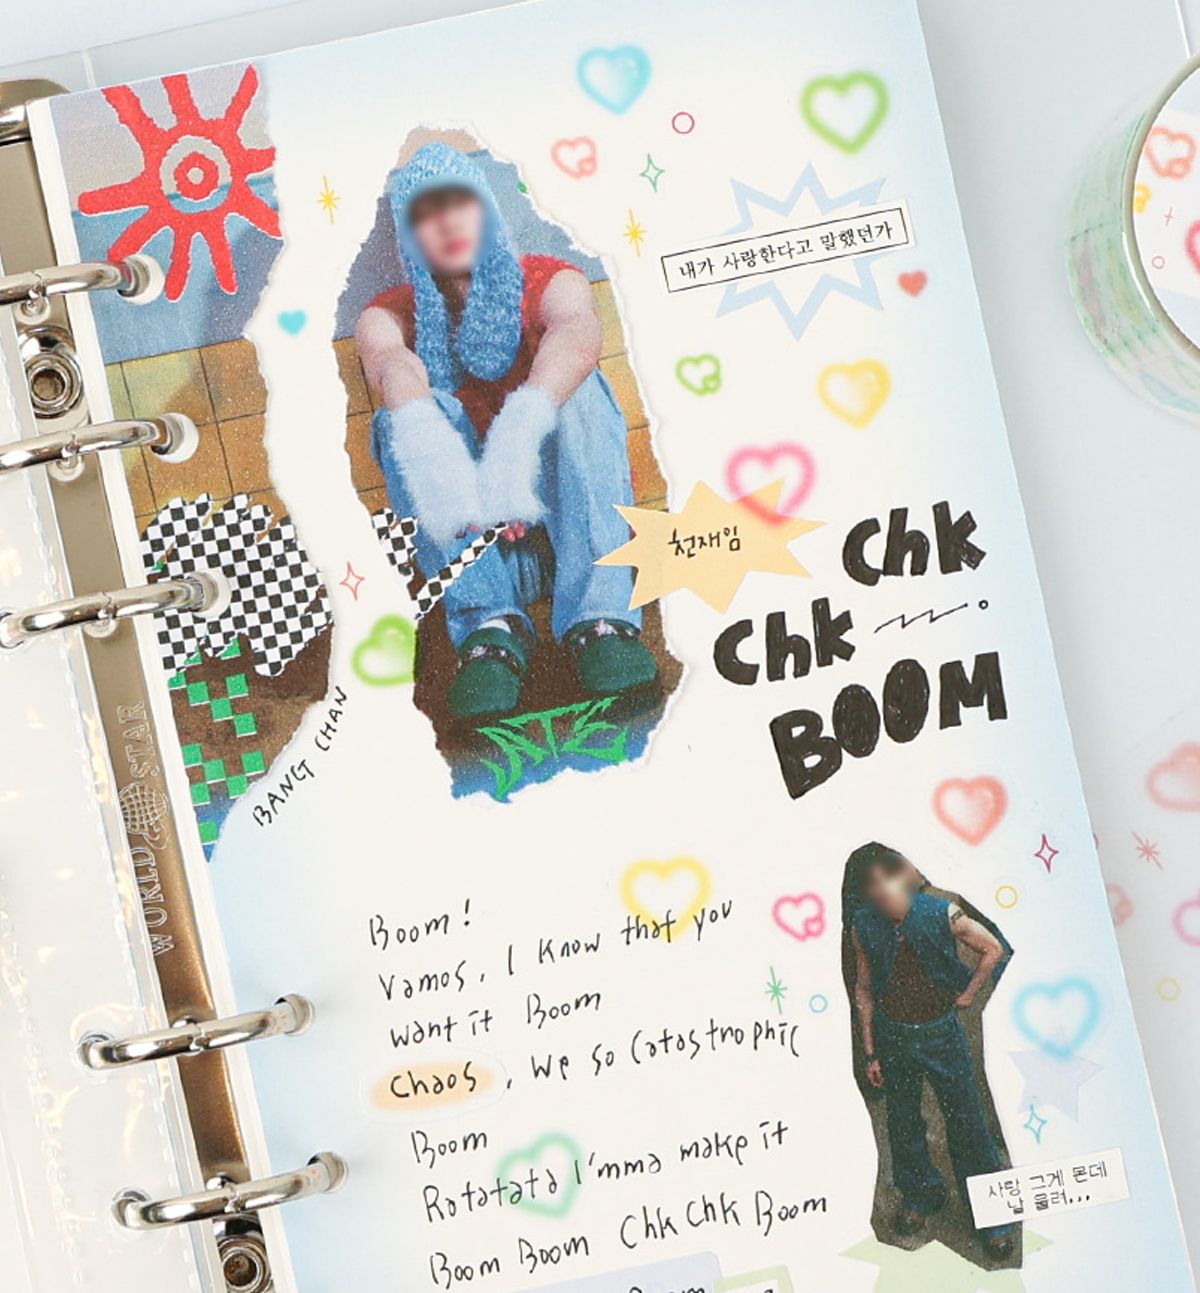 내가 사랑한다고 말했던가
천재임
Chk
Chk
BOOM
BANG CHAN
ATE
WORLD STAR
Boom!
Vamos, I know that you
want it Boom
Chaos, We so catastrophic
Boom
Ratatata I'mma make it
Boom Boom Chk Chk Boom
사랑 그게 몬데
날 울려...